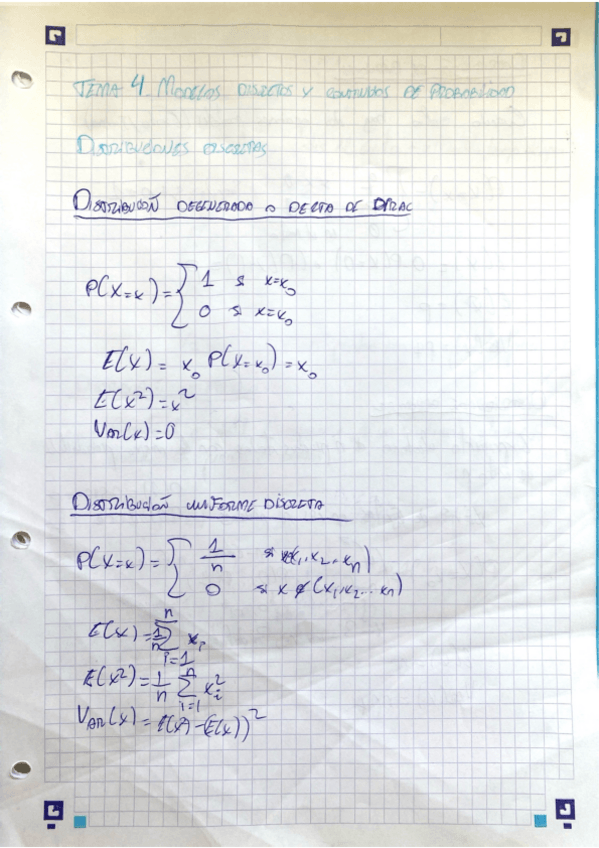 TEMA 4 MODELOS DISCRETOS Y CONTINUOS DE PROBABILIDAD
DISTRIBUCIONES DISCRETAS
DISTRIBUCIÓN DEGENERADA O DELTA DE DIRAC
P(X=x) = { 1 si x=x₀
0 si x=x₀
E(X) = x₀ P(X=x₀) = x₀
E(x²) = x²
VAR(x) = 0
DISTRIBUCIÓN UNIFORME DISCRETA
P(X=x) = { 1/n si x∈(x₁,x₂...xₙ)
0 si x ∉ (x₁,x₂...xₙ)
E(x) = 1/n ∑ᵢ₌₁ⁿ xᵢ
E(x²) = 1/n ∑ᵢ₌₁ⁿ xᵢ²
VAR(x) = E(x²) - (E(x))²